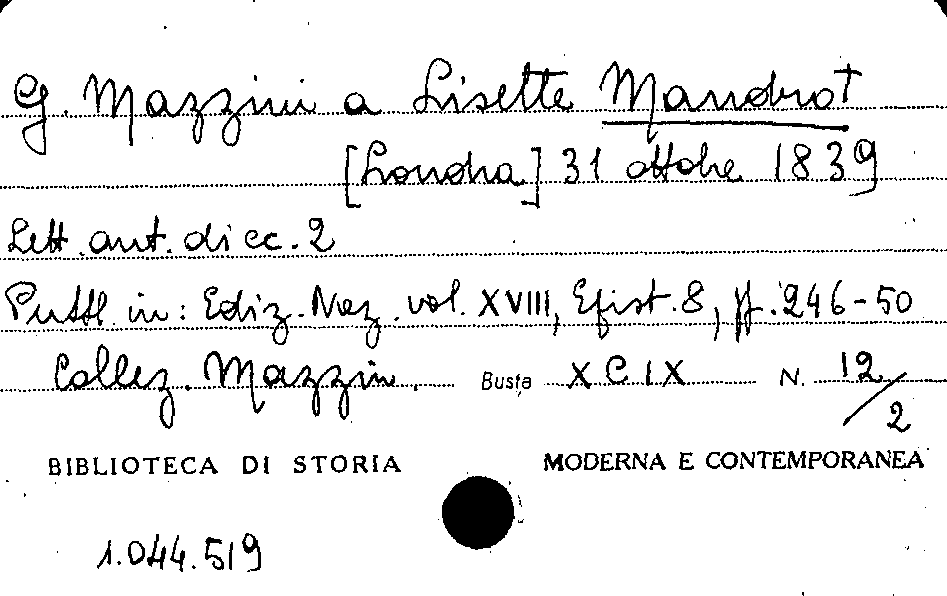 G. Mazzini a Lisette Mandrot
[Londra] 31 ottobre 1839
Lett. aut. di cc. 2
Pubbl. in: Ediz. Naz. vol. XVIII, Epist. 8, pp. 246-50
Collez. Mazzin. Busta XCIX N. 12/2
BIBLIOTECA DI STORIA MODERNA E CONTEMPORANEA
1.044.519